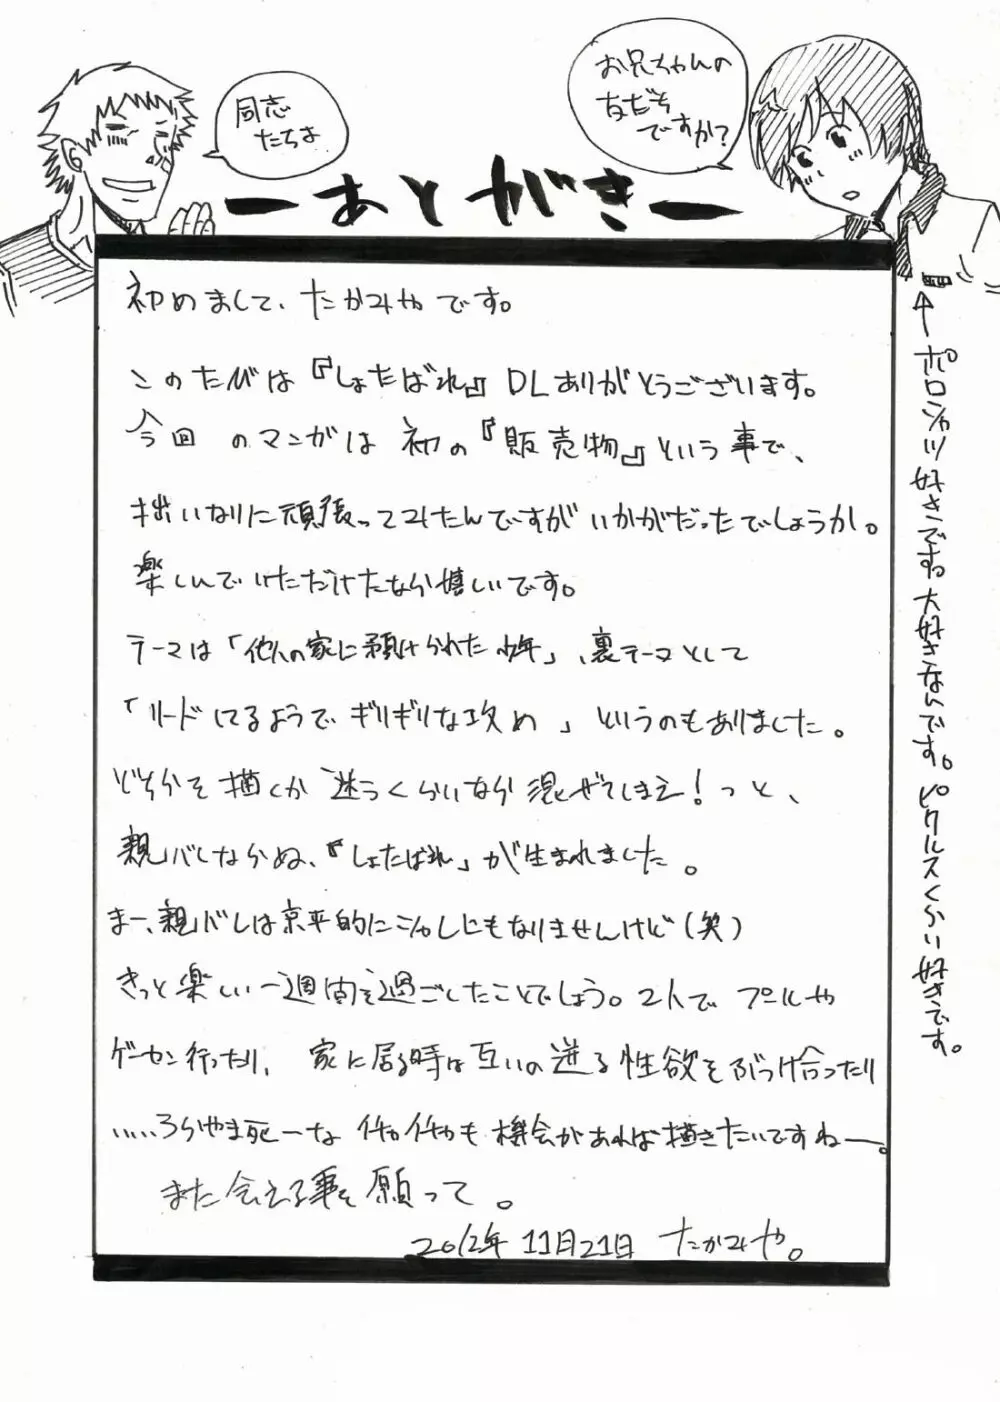 同志
たちよ
お兄ちゃんの
友だち
ですか?
ーあとがきー
初めまして、たかみやです。
このたびは『しょたばれ』DLありがとうございます。
今回のマンガは初の『販売物』という事で、
拙いなりに頑張ってみたんですがいかがだったでしょうか。
楽しんでいただけたなら嬉しいです。
テーマは「他人の家に預けられた少年」、裏テーマとして
「リードしてるようでギリギリな攻め」というのもありました。
どちらを描くか迷うくらいなら混ぜてしまえ!っと、
親バレならぬ、『しょたばれ』が生まれました。
まー、親バレは京平的にシャレにもなりませんけど(笑)
きっと楽しい一週間を過ごしたことでしょう。2人でプールや
ゲーセン行ったり、家に居る時は互いの迸る性欲をぶつけ合ったり
……うらやま死ーなイチャイチャも機会があれば描きたいですねー。
また会える事を願って。
2012年11月21日 たかみや。
ポロシャツ好きですね大好きなんです。ピクルスくらい好きです。